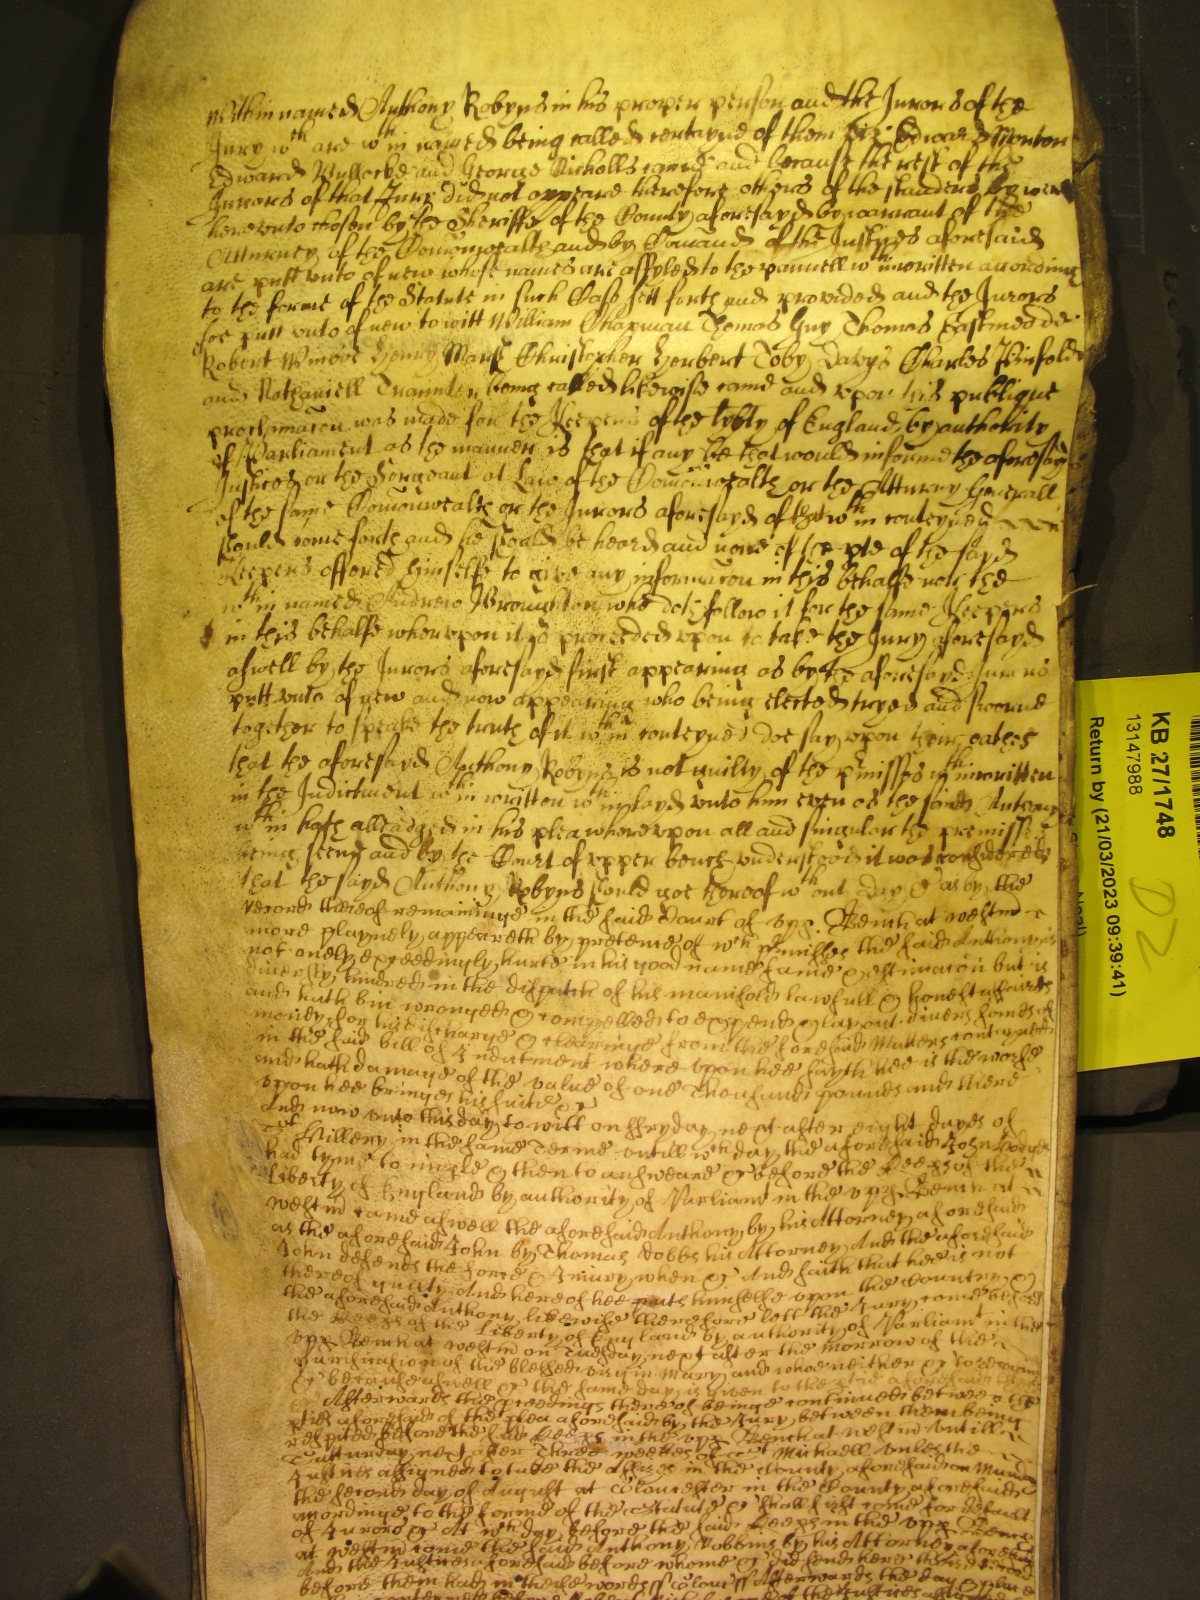 within named Anthony Robyns in his proper person and the Jurors of the
Jury wth are wth in named being called certayne of them viz: Edward
Edward Bullocke and George Nicholls came and because the rest of the
Jurors of that Jury did not appeare therefore others of the standers by were
herevnto chosen by the Sheriffe of the County aforesayd by warrant of the
Atturney of the Comonwealth and by Comand of the Justices aforesaid
are putt vnto of new whose names are affyled to the pannell wth inwritten according
to the forme of the Statute in such Case sett forth and provided and the Jurors
soe putt vnto of new to witt William Chapman Thomas Guy Thomas Eastmeade
Robert Henry Christopher Herbert Toby Davys Charles Pinfold
and Nathaniell being called likewise came and vpon this publique
proclimacon was made for the Keepers of the libty of England by authority
of Parliament as the manner is that if any be that would informe the aforesayd
Justices or the Sergeant at Law of the Comonwealth or the Atturny Generall
of the same Comonwealth or the Jurors aforesayd of that wth in conteyned
should come forth and he should be heard and none of the pte of the sayd
Keepers offered himselfe to give any informacon in this behalfe nor the
wth in named Andrew Broughton who doth follow it for the same Keepers
in this behalfe wherevpon it is proceeded vpon to take the Jury aforesayd
aswell by the Jurors aforesayd first appearing as by the aforesayd Jurors
putt vnto of new and now appearing who being elected tryed and sworne
together to speake the truth of it wth in conteyned doe say vpon their oathes
that the aforesayd Anthony Robyns is not guilty of the pmisses wth inwritten
in the Indictment wth in written wth in layd vnto him even as the said Anthony
wth in hath alleadged in his plea wherevpon all and singular the premisses
being seene and by the Court of vpper bench vnderstood it was considered
that the sayd Anthony Robyns should goe thereof wth out day &c as by the
record thereof remaininge in the said Court of vpp Bench at westm
more playnely appeareth by pretence of wth pmisses the said Anthony is
not onely exceedingly hurte in his good name fame & estimacon but is
diversly hindred in the dispatch of his manifold lawfull & honest affaires
and hath bin wronged & compelled to expend & lay out divers somes of
money for his discharge & clearinge from the foresaid matters conteyned
in the said bill of Indictment where vpon hee sayth hee is the worse
and hath damage of the value of one Thousand pounds and there
vpon hee bringes his suite &c
And now vnto this day to witt on ffryday next after eight dayes of
St Hillery in the same Terme vntill wth day the aforesaid John
had tyme to imple & then to answeare &c before the Keeps of the
Liberty of England by authority of Parliamt in the vpp Bench at
westm came aswell the aforesaid Anthony by his Attorney aforesaid
as the aforesaid John by Thomas Hobbs his Attorney And the aforesaid
John defends the force & Iniury when &c And saith that hee is not
thereof guilty And hereof hee putts himselfe vpon the Country &
the aforesaid Anthony likewise therefore lett the Jury come before
the Keeps of the Liberty of England by authority of Parliamt in the
vpp Bench at westm on Tuesday next after the morrow of the
Purificacon of the blessed virgin Mary and whoe neither &c to recognize
&c because aswell &c the same day is given to the pties aforesaid there
Afterwards the pceedings thereof beinge continued betweene the
pties aforesaid of the plea aforesaid by the Jury betweene them beinge
respited before the said Keeps in the vpp Bench at westm vntill
Satturday next after Three weekes of St Michaell vnles the
Justices assigned to take the assizes in the County aforesaid on Munday
the second day of August at Gloucester in the County aforesaid
accordinge to the forme of the Statute &c shall first come for default
of Jurors &c At wth day before the said Keeps in the vpp Bench
at westm came the said Anthony Robbins by his Attorney aforesaid
And the Justices aforesaid before whome &c did send here their record
before them had in theise words ss Glouc ss Afterwards the day & place
KB 27/1748
13147988
Return by (21/03/2023 09:39:41)
D2